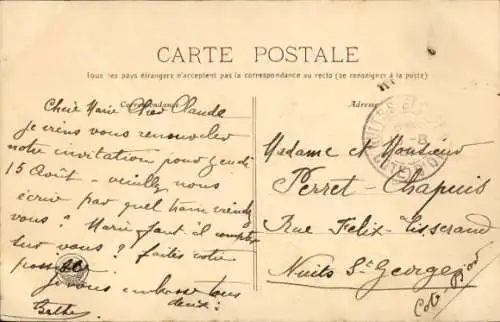 CARTE POSTALE
Tous les pays étrangers n'acceptent pas la correspondance au recto (se renseigner à la poste)
Correspondance
Adresse
Chère Marie Cher Claude
je viens vous renouveler
notre invitation pour jeudi
15 Août - veuillez nous
écrire par quel train viendrez
vous? Marie faut il compter
sur vous? faites votre
possible
je vous embrasse tous
deux.
Berthe
Madame et Monsieur
Perret-Chapuis
Rue Felix-Tisserand
Nuits St Georges
Cote-D'or